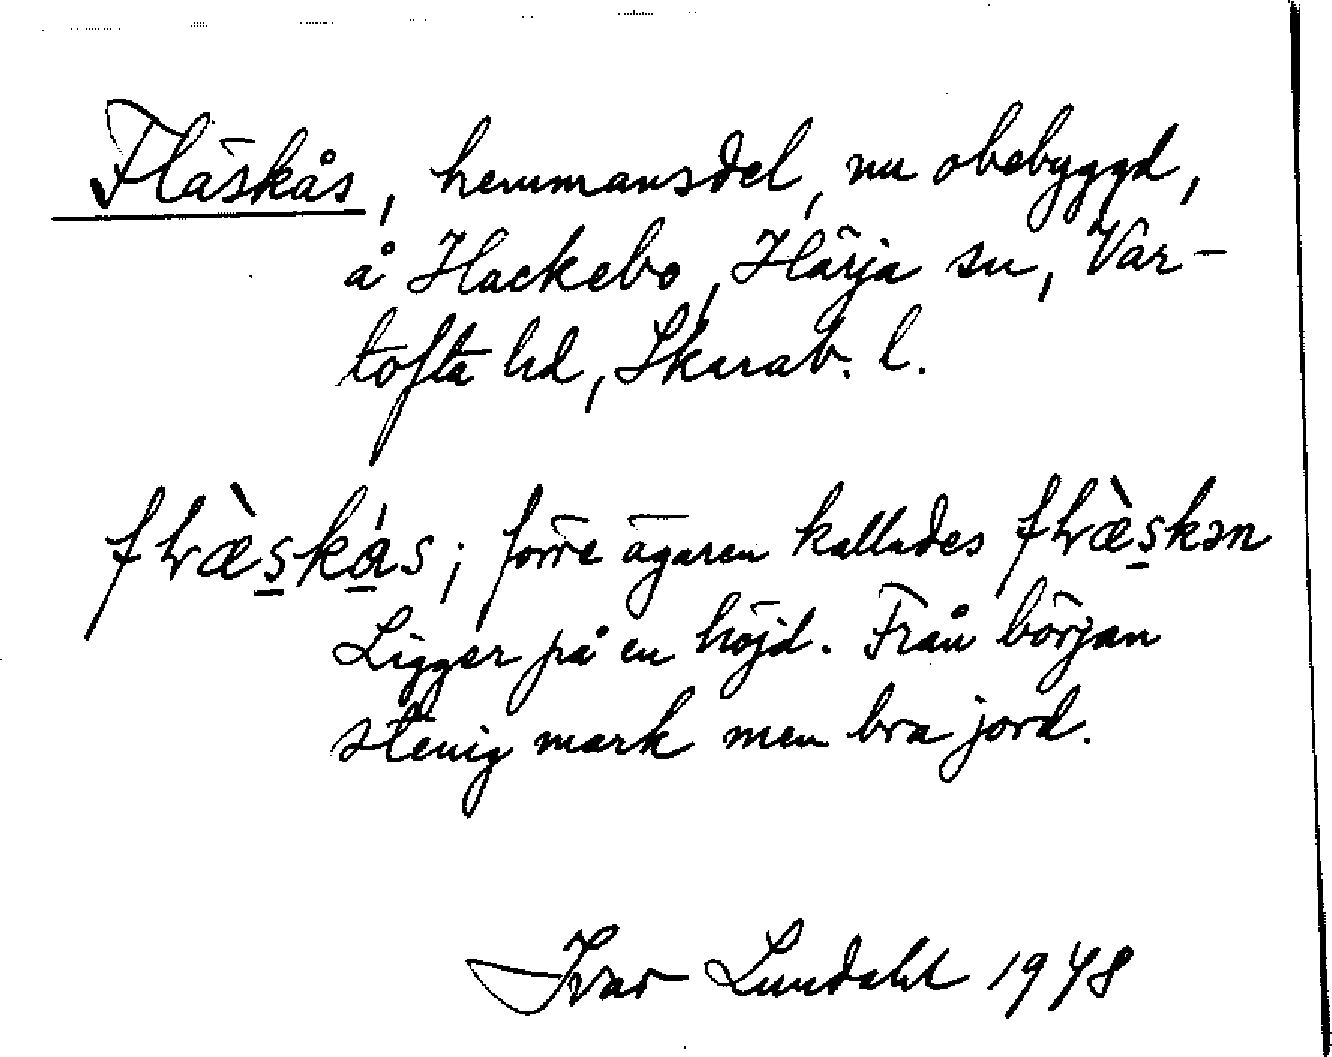 Fläskås, hemmansdel, nu obebyggd,
å Hackebo, Härja sn, Var-
tofta hd, Skarab. l.
fɫæ̀s̠ká̠s; förre ägaren kallades fɫæ̀s̠kən
Ligger på en höjd. Från början
stenig mark men bra jord.
Ivar Lundahl 1948